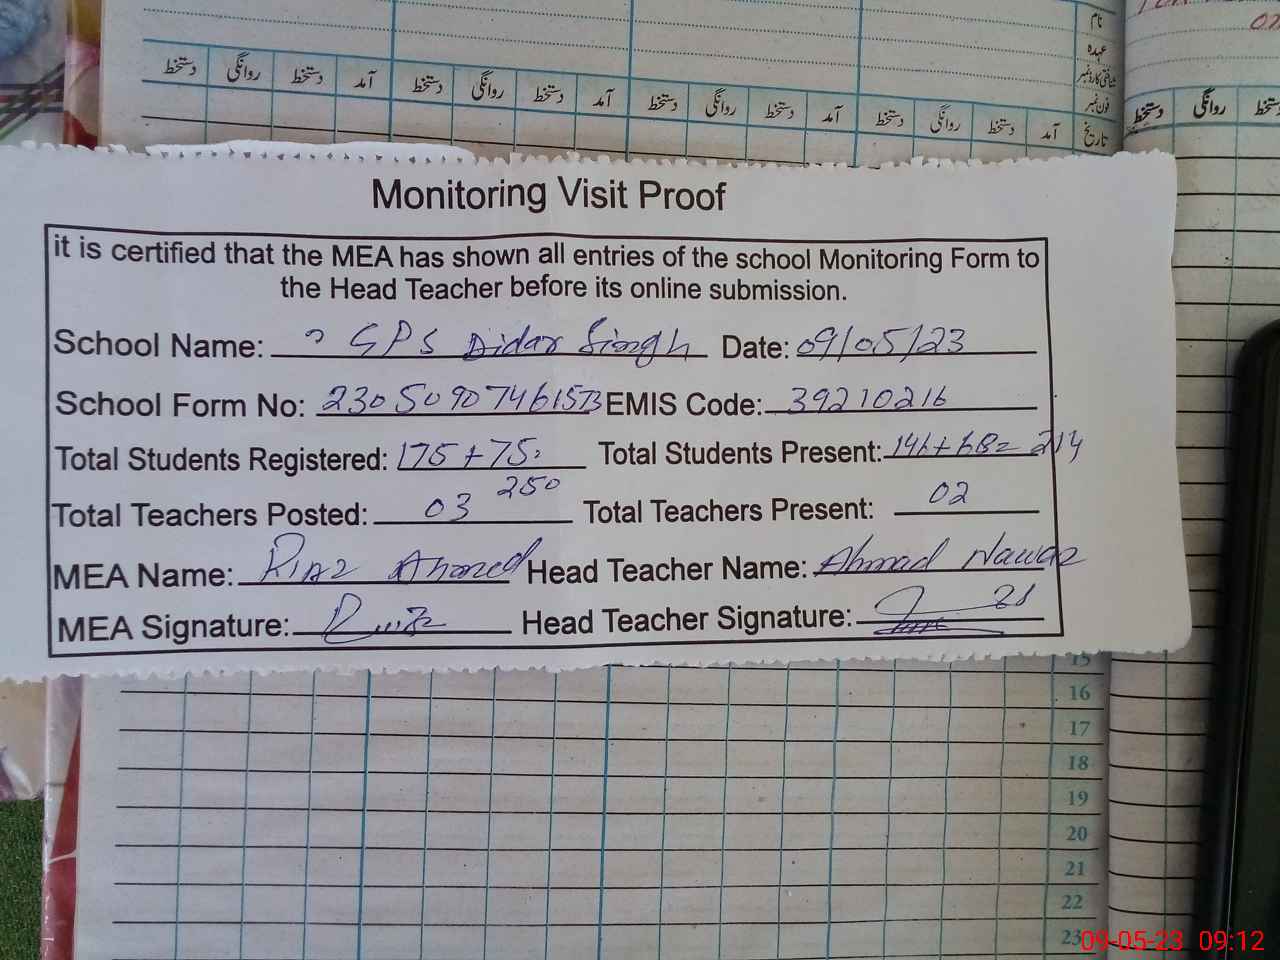 نام
عہدہ
فون نمبر
دستخط روانگی دستخط آمد دستخط روانگی دستخط آمد دستخط روانگی دستخط آمد دستخط روانگی دستخط آمد تاریخ
دستخط روانگی
Monitoring Visit Proof
it is certified that the MEA has shown all entries of the school Monitoring Form to
the Head Teacher before its online submission.
School Name: GPS Didar Singh Date: 09/05/23
School Form No: 23050907461573 EMIS Code: 39210216
Total Students Registered: 175+75= Total Students Present: 146+68= 214
250
Total Teachers Posted: 03 Total Teachers Present: 02
MEA Name: Riaz Ahmed Head Teacher Name: Ahmad Nawaz
MEA Signature: Head Teacher Signature:
15
16
17
18
19
20
21
22
23
09-05-23 09:12